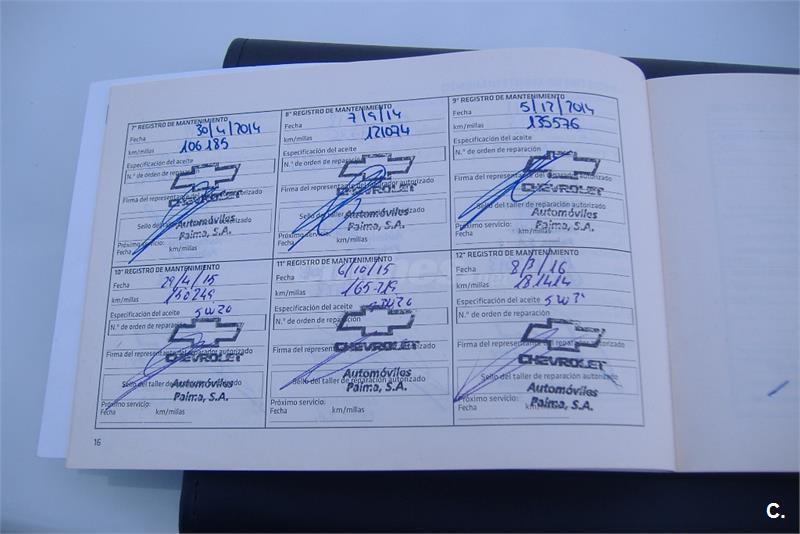 7º REGISTRO DE MANTENIMIENTO
Fecha 30/4/2014
km/millas 106185
Especificación del aceite
N.° de orden de reparación
CHEVROLET
Firma del representante del reparador autorizado
Sello del taller de reparación autorizado
Automóviles
Palma, S.A.
Próximo servicio:
Fecha km/millas
8º REGISTRO DE MANTENIMIENTO
Fecha 7/9/14
km/millas 121074
Especificación del aceite
N.° de orden de reparación
CHEVROLET
Firma del representante del reparador autorizado
Sello del taller de reparación autorizado
Automóviles
Palma, S.A.
Próximo servicio:
Fecha km/millas
9º REGISTRO DE MANTENIMIENTO
Fecha 5/12/2014
km/millas 135576
Especificación del aceite
N.° de orden de reparación
Firma del representante del reparador autorizado
CHEVROLET
Sello del taller de reparación autorizado
Automóviles
Palma, S.A.
Próximo servicio:
Fecha km/millas
10º REGISTRO DE MANTENIMIENTO
Fecha 29/4/15
km/millas 150249
Especificación del aceite 5W30
N.° de orden de reparación
Firma del representante del reparador autorizado
CHEVROLET
Sello del taller de reparación autorizado
Automóviles
Palma, S.A.
Próximo servicio:
Fecha km/millas
11º REGISTRO DE MANTENIMIENTO
Fecha 6/10/15
km/millas
Especificación del aceite 5W30
N.° de orden de reparación
Firma del representante del reparador autorizado
CHEVROLET
Sello del taller de reparación autorizado
Automóviles
Palma, S.A.
Próximo servicio:
Fecha km/millas
12º REGISTRO DE MANTENIMIENTO
Fecha 8/3/16
km/millas 181414
Especificación del aceite
N.° de orden de reparación
Firma del representante del reparador autorizado
CHEVROLET
Sello del taller de reparación autorizado
Automóviles
Palma, S.A.
Próximo servicio:
Fecha km/millas
16
C.